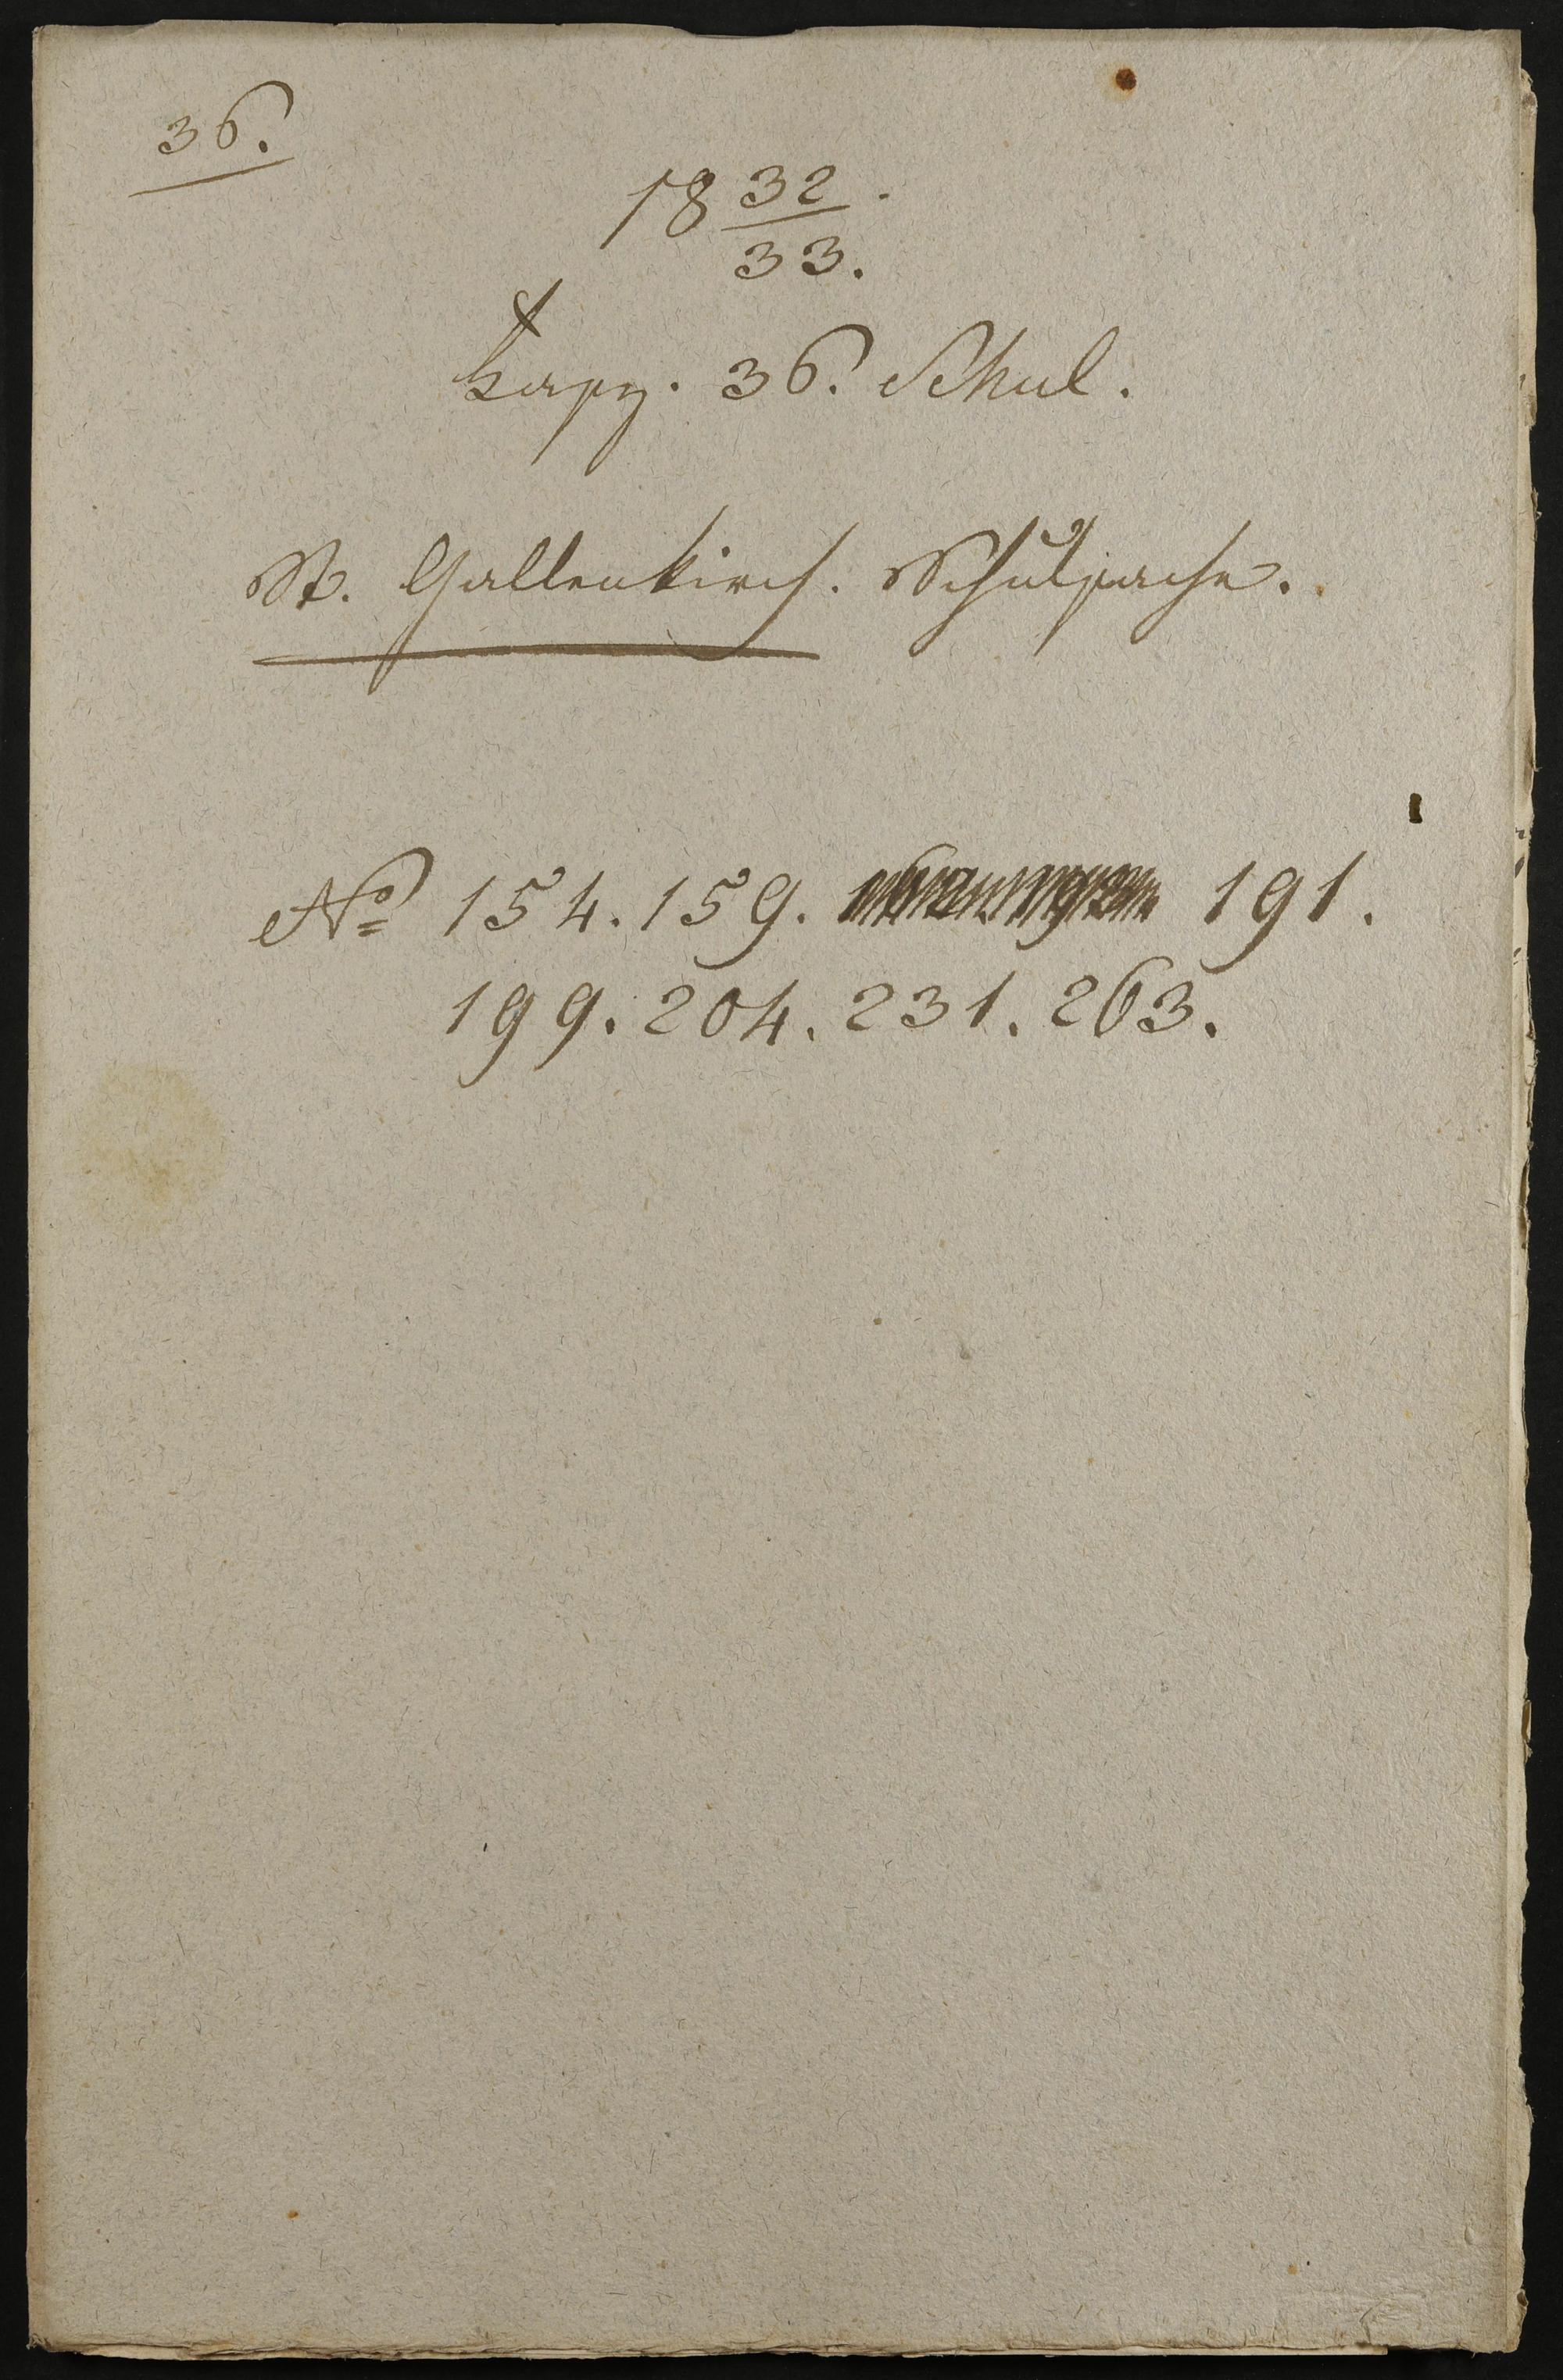 36.
18 32/33.
Fasz. 36. Schul.
St. Gallenkirch. Schulsache.
No 154. 159. 191.
199. 204. 231. 263.